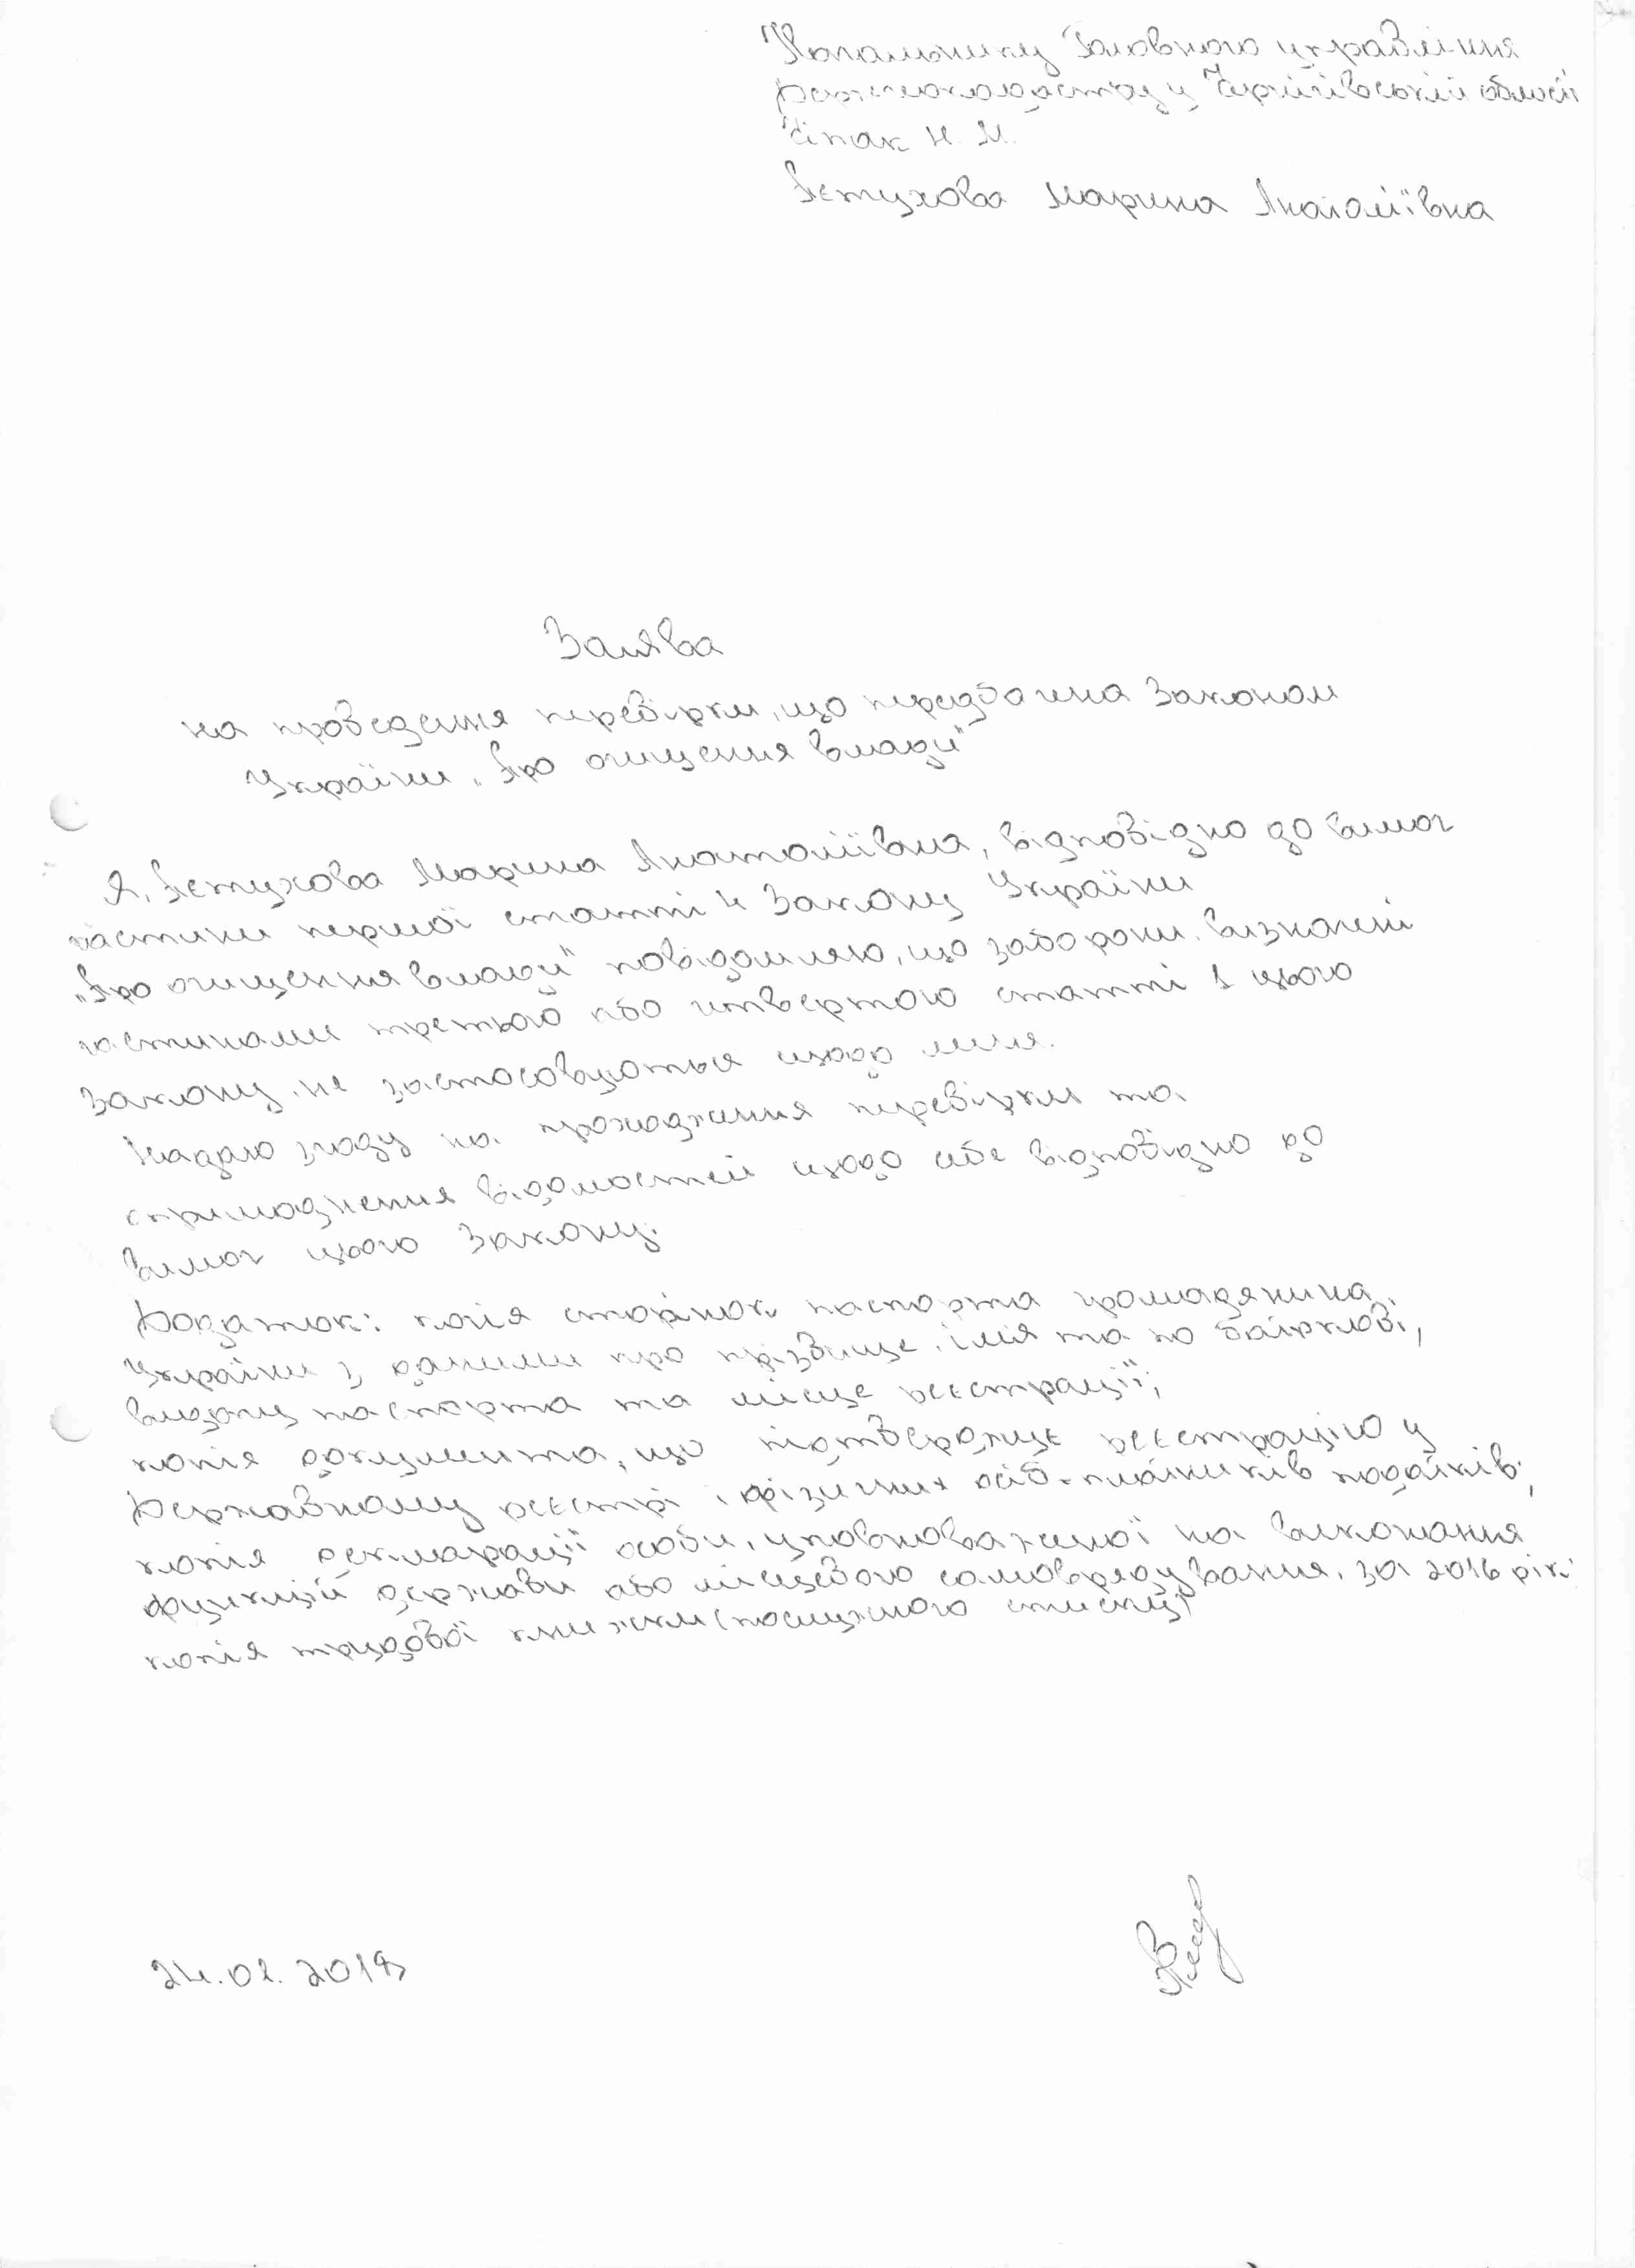 Начальнику Головного управління
Держгеокадастру у Чернігівській області
Чіпак Н. М.
Петухова Марина Анатоліївна
Заява
на проведення перевірки, що передбачена Законом
України „Про очищення влади"
Я, Петухова Марина Анатоліївна, відповідно до вимог
частини першої статті 4 Закону України
„Про очищення влади" повідомляю, що заборони, визначені
частинами третьою або четвертою статті 1 цього
Закону, не застосовуються щодо мене.
Надаю згоду на проходження перевірки та
оприлюднення відомостей щодо себе відповідно до
вимог цього Закону.
Додаток: копія сторінок паспорта громадянина
України з даними про прізвище, ім'я та по батькові,
видачу паспорта та місце реєстрації;
копія документа, що підтверджує реєстрацію у
Державному реєстрі фізичних осіб-платників податків;
копія декларації особи, уповноваженої на виконання
функцій держави або місцевого самоврядування, за 2016 рік;
копія трудової книжки (послужного списку)